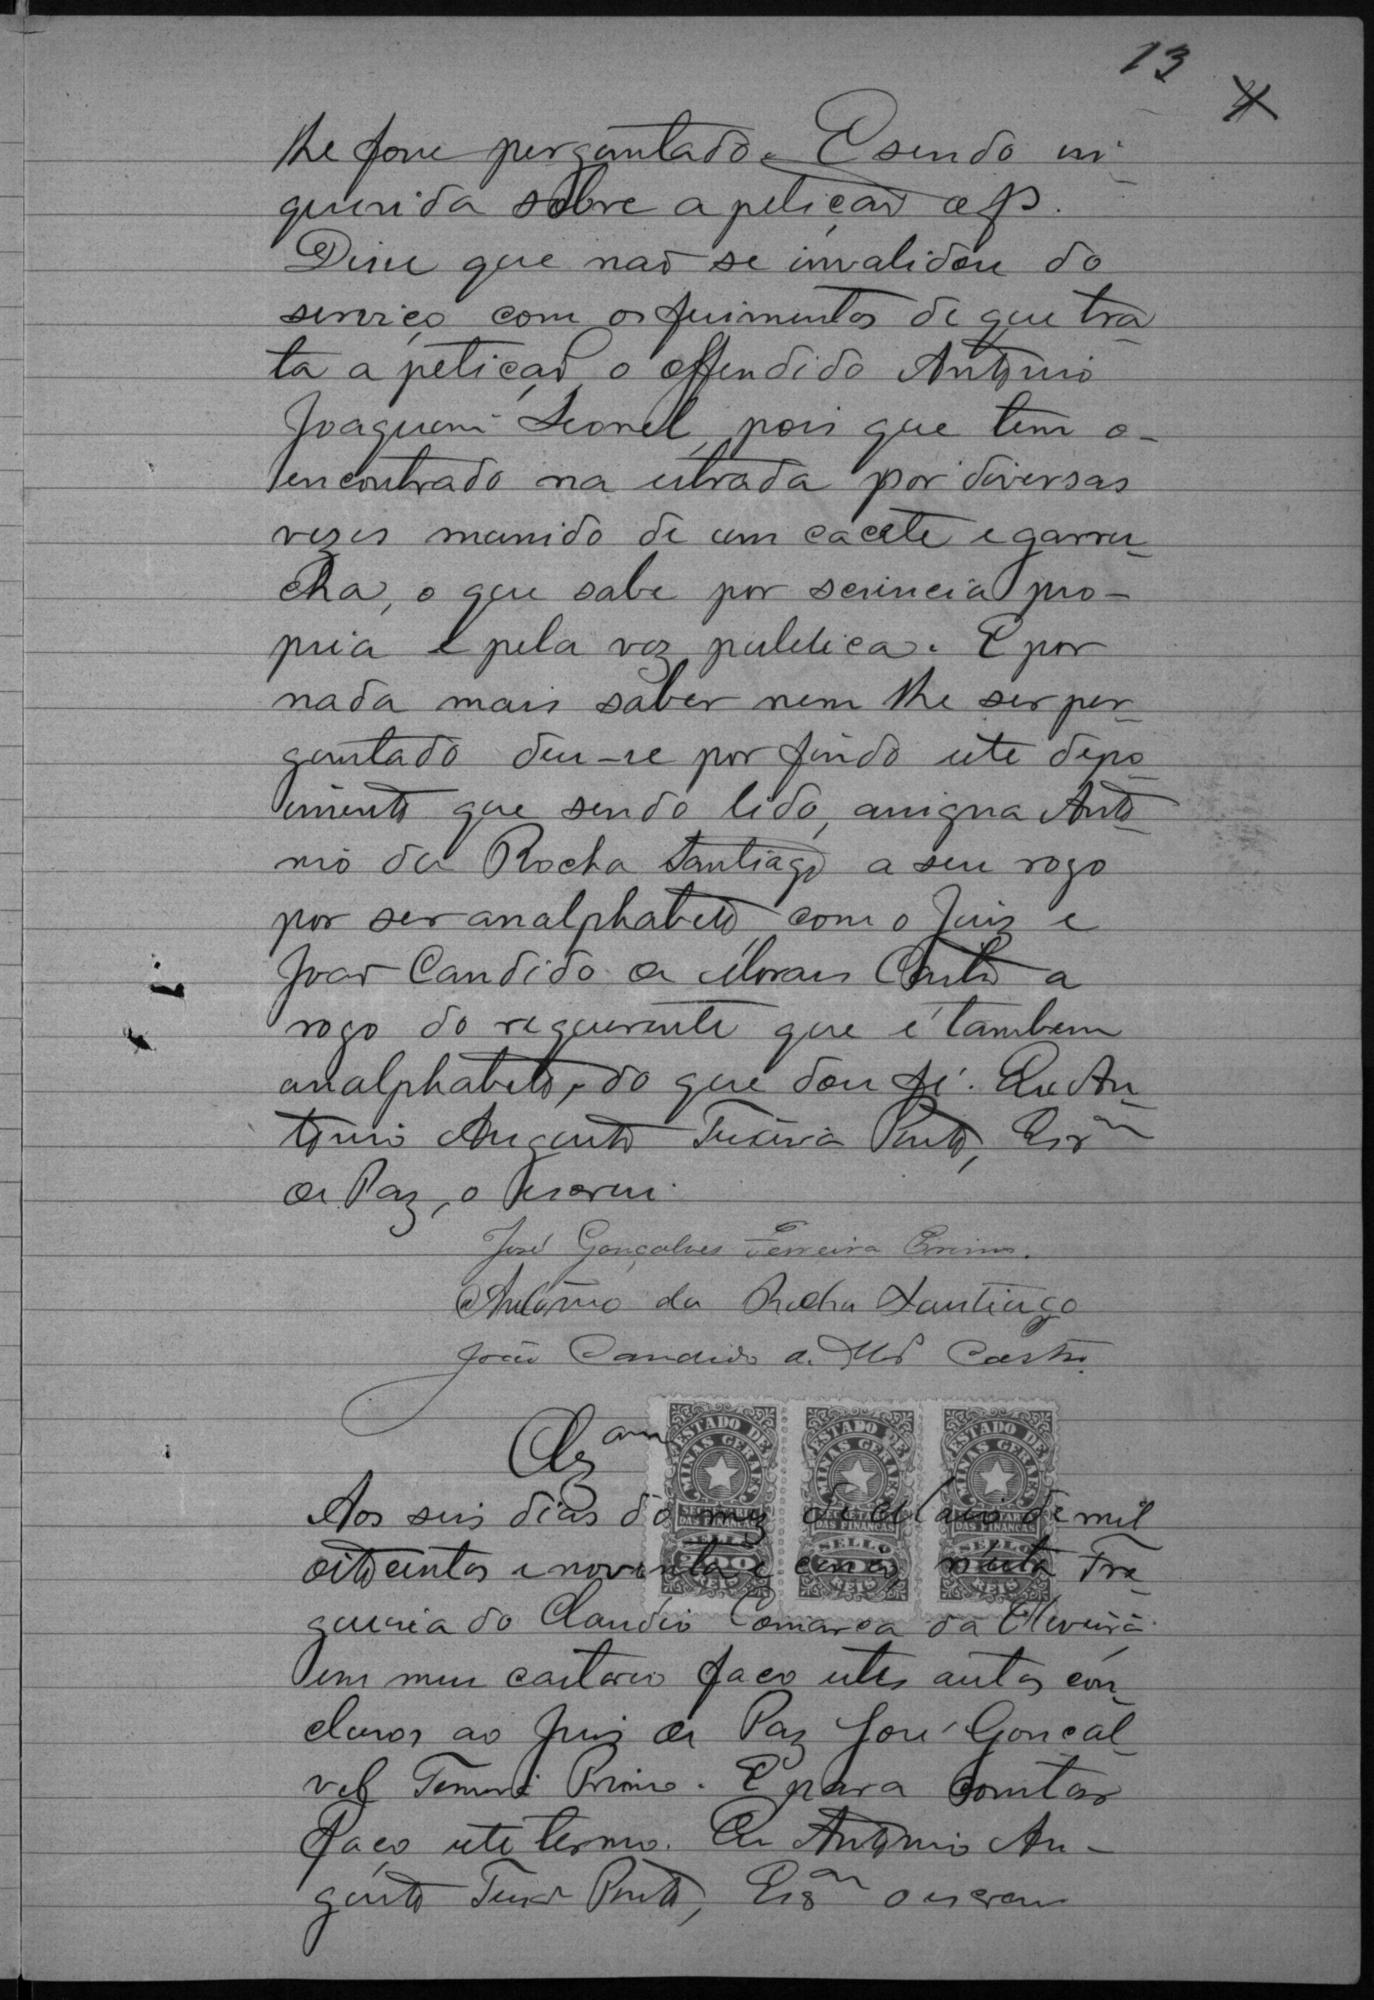 13
lhe fosse perguntado. E sendo in-
querida sobre a petição de fls.
Disse que não se invalidou do
serviço com os ferimentos de que tra-
ta a petição, o offendido Antonio
Joaquim Leonel, pois que tem o-
encontrado na estrada por diversas
vezes munido de um cacete e garru-
cha, o que sabe por sciencia pro-
pria e pela voz publica. E por
nada mais saber nem lhe ser per-
guntado deu-se por findo este depo-
imento que sendo lido, assigna Anto-
nio da Rocha Santiago a seu rogo
por ser analphabeto, com o Juiz e
João Candido de Moraes Castro a
rogo do requerente que é tambem
analphabeto, do que dou fé. Eu An-
tonio Augusto Teixeira Pinto, Escam
de Paz, o escrevi.
José Gonçalves Ferreira Primo.
Antonio da Rocha Santiago
João Candido de Ms Castro.
Clzam
ESTADO DE MINAS GERAES ESTADO DE MINAS GERAES ESTADO DE MINAS GERAES
SECRETARIA DAS FINANÇAS SECRETARIA DAS FINANÇAS SECRETARIA DAS FINANÇAS
SELLO SELLO SELLO
200 REIS
Aos seis dias do mez de Maio de mil
oitocentos e noventa e cinco, nesta Fre-
guesia do Claudio Comarca da Oliveira
em meu cartorio faço estes autos con-
clusos ao Juiz de Paz José Gonçal-
ves Ferreira Primo. E para constar
faço este termo. Eu Antonio Au-
gusto Teixa Pinto, Escam o escrevi